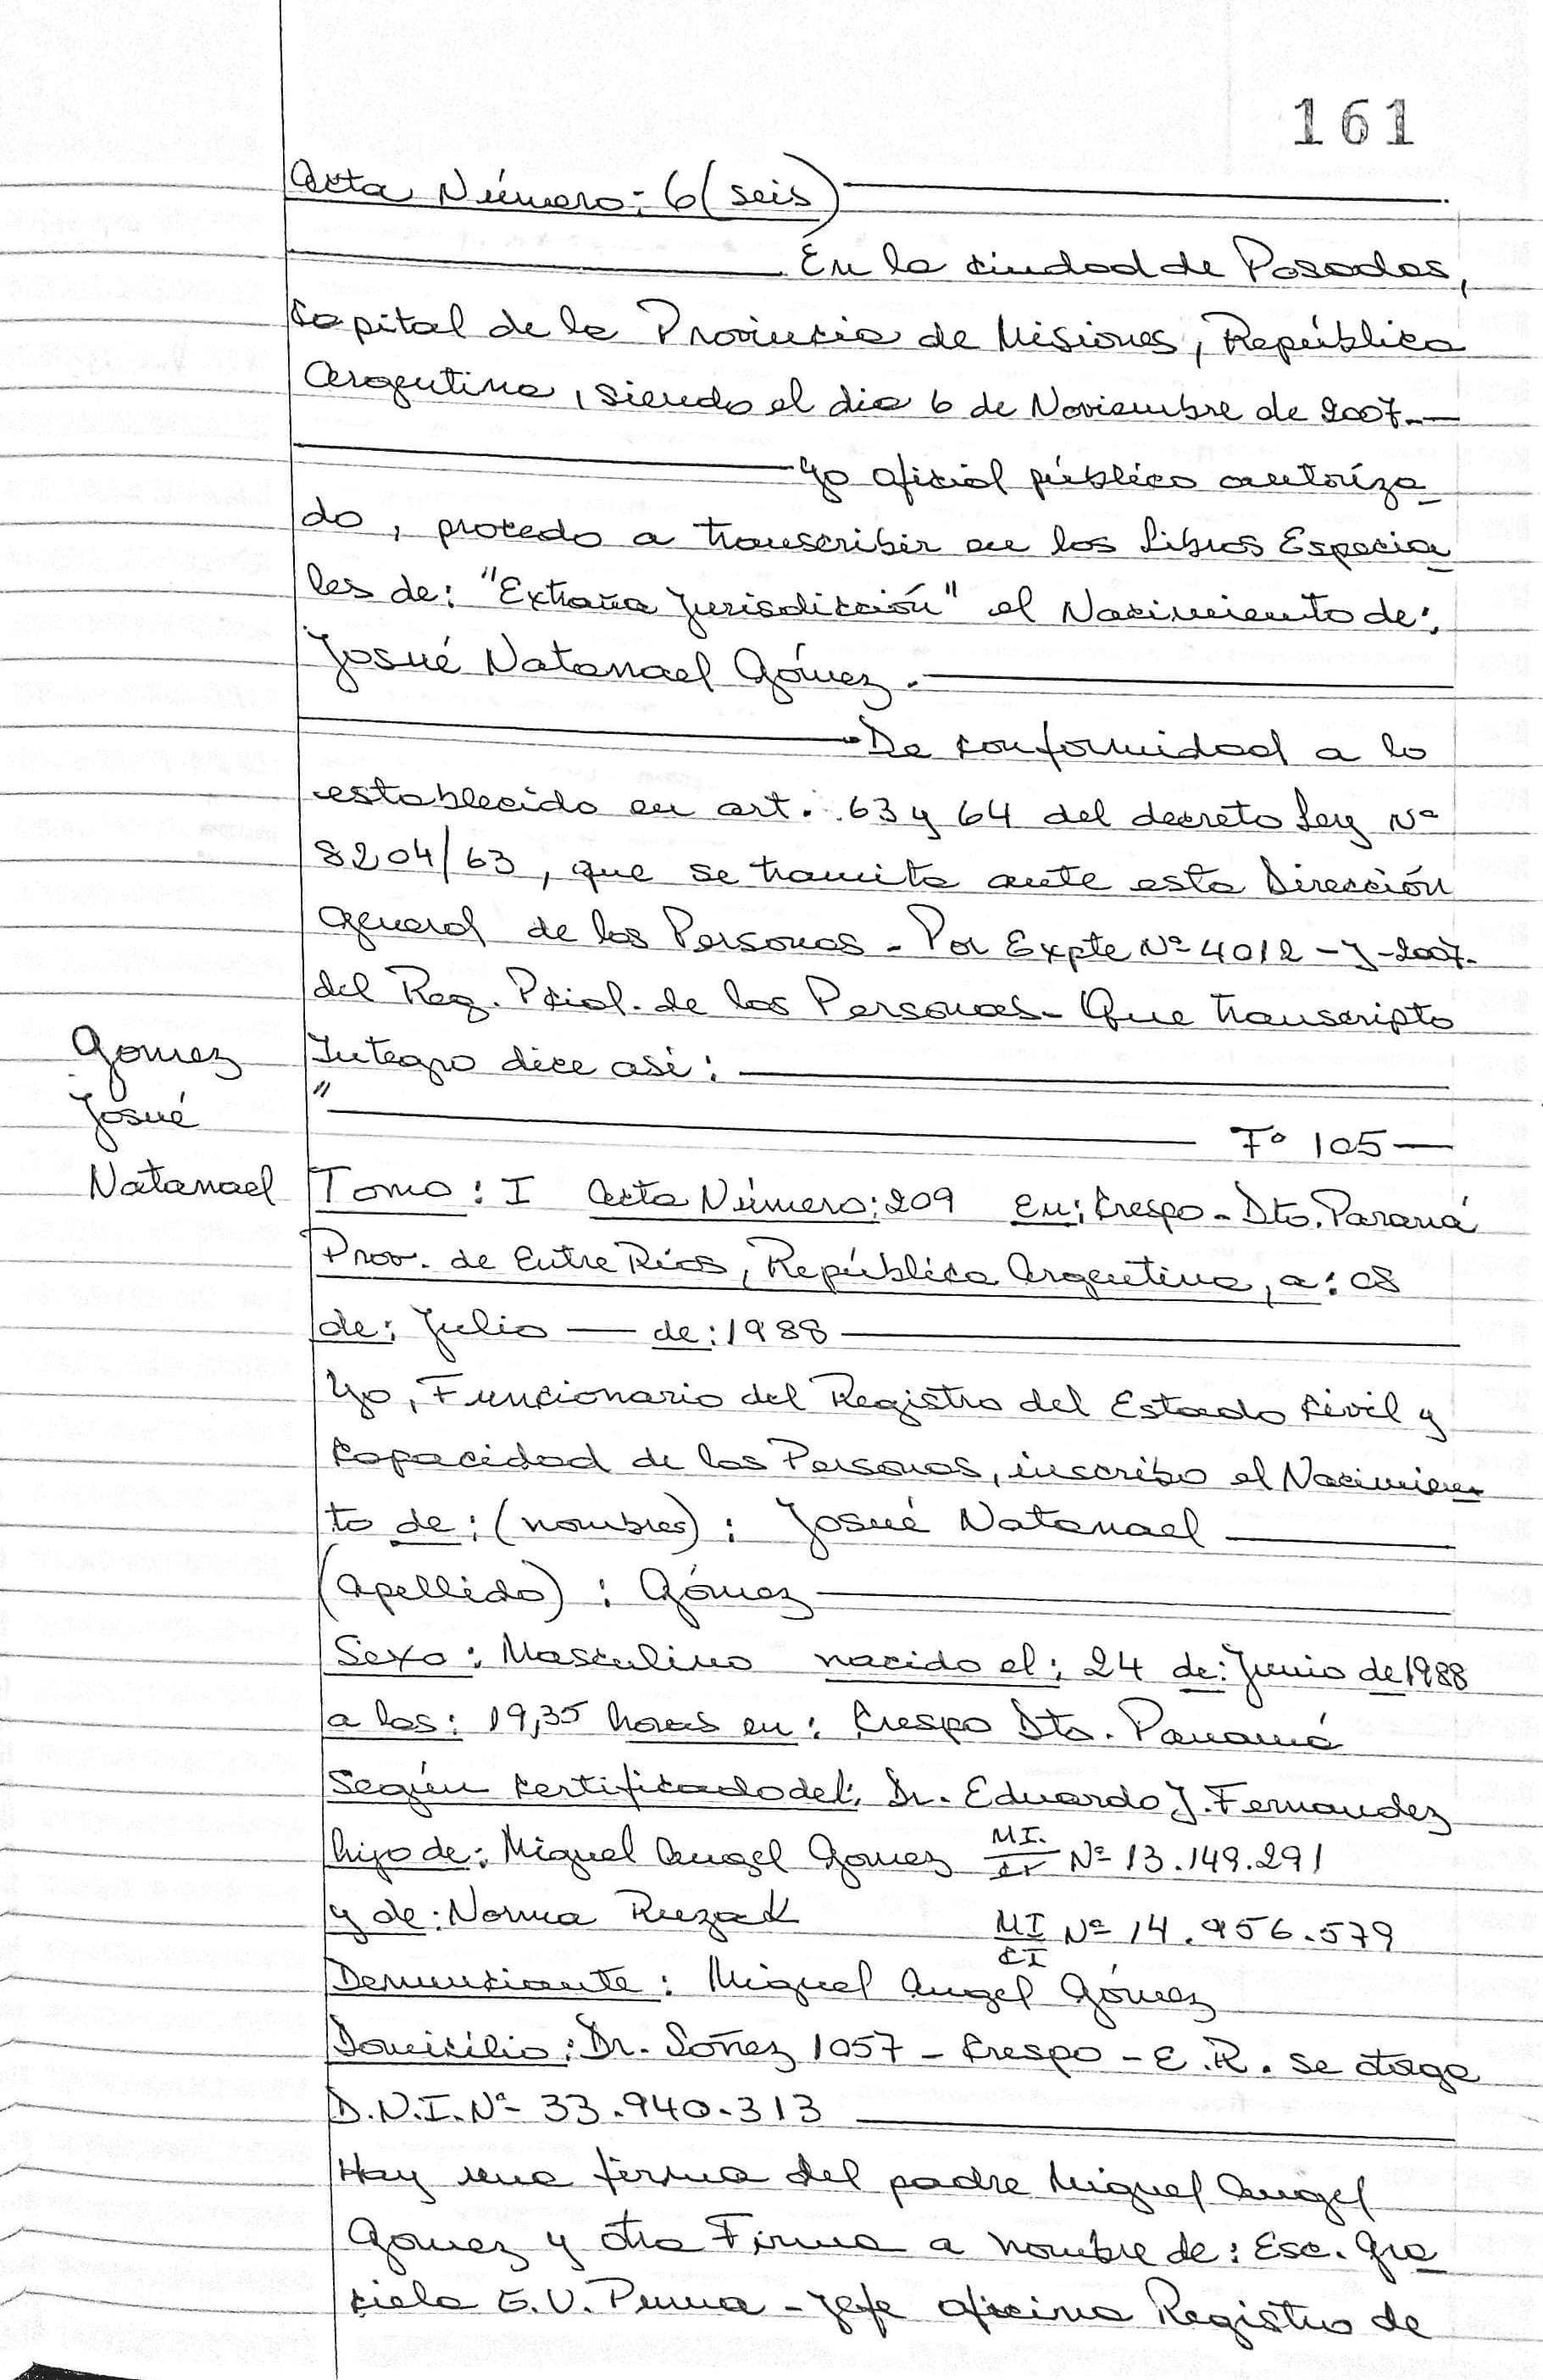 161
Acta Número: 6 (seis)
En la ciudad de Posadas,
capital de la Provincia de Misiones, República
Argentina, siendo el dia 6 de Noviembre de 2007.-
Yo oficial público autoriza-
do, procedo a transcribir en los Libros Especia-
les de: "Extraña Jurisdicción" el Nacimiento de:
Josué Natanael Gómez.
De conformidad a lo
establecido en art. 63 y 64 del decreto Ley Nº
8204/63, que se tramita ante esta Dirección
General de las Personas - Por Expte Nº 4012-J-2007-
del Reg. Pcial. de las Personas - Que transcripto
Integro dice asi:
" Fº 105
Gomez
Josué
Natanael
Tomo: I Acta Número: 209 En: Crespo - Dto. Paraná
Prov. de Entre Rios, República Argentina, a: 08
de: Julio — de: 1988
Yo, Funcionario del Registro del Estado Civil y
Capacidad de las Personas, inscribo el Nacimien-
to de: (nombres): Josué Natanael
(apellido): Gómez
Sexo: Masculino nacido el: 24 de: Junio de 1988
a las: 19,35 horas en: Crespo Dto. Paraná
Según certificado del: Dr. Eduardo J. Fernandez
hijo de: Miguel Angel Gomez MI. Nº 13.149.291
y de: Norma Ruzak MI/CI Nº 14.956.579
Denunciante: Miguel Angel Gómez
Domicilio: Dr. Soñez 1057 - Crespo - E.R. se otorga
D.N.I. Nº 33.940.313
Hay una firma del padre Miguel Angel
Gomez y otra Firma a nombre de: Esc. Gra-
ciela E.V. Penna - Jefe oficina Registro de